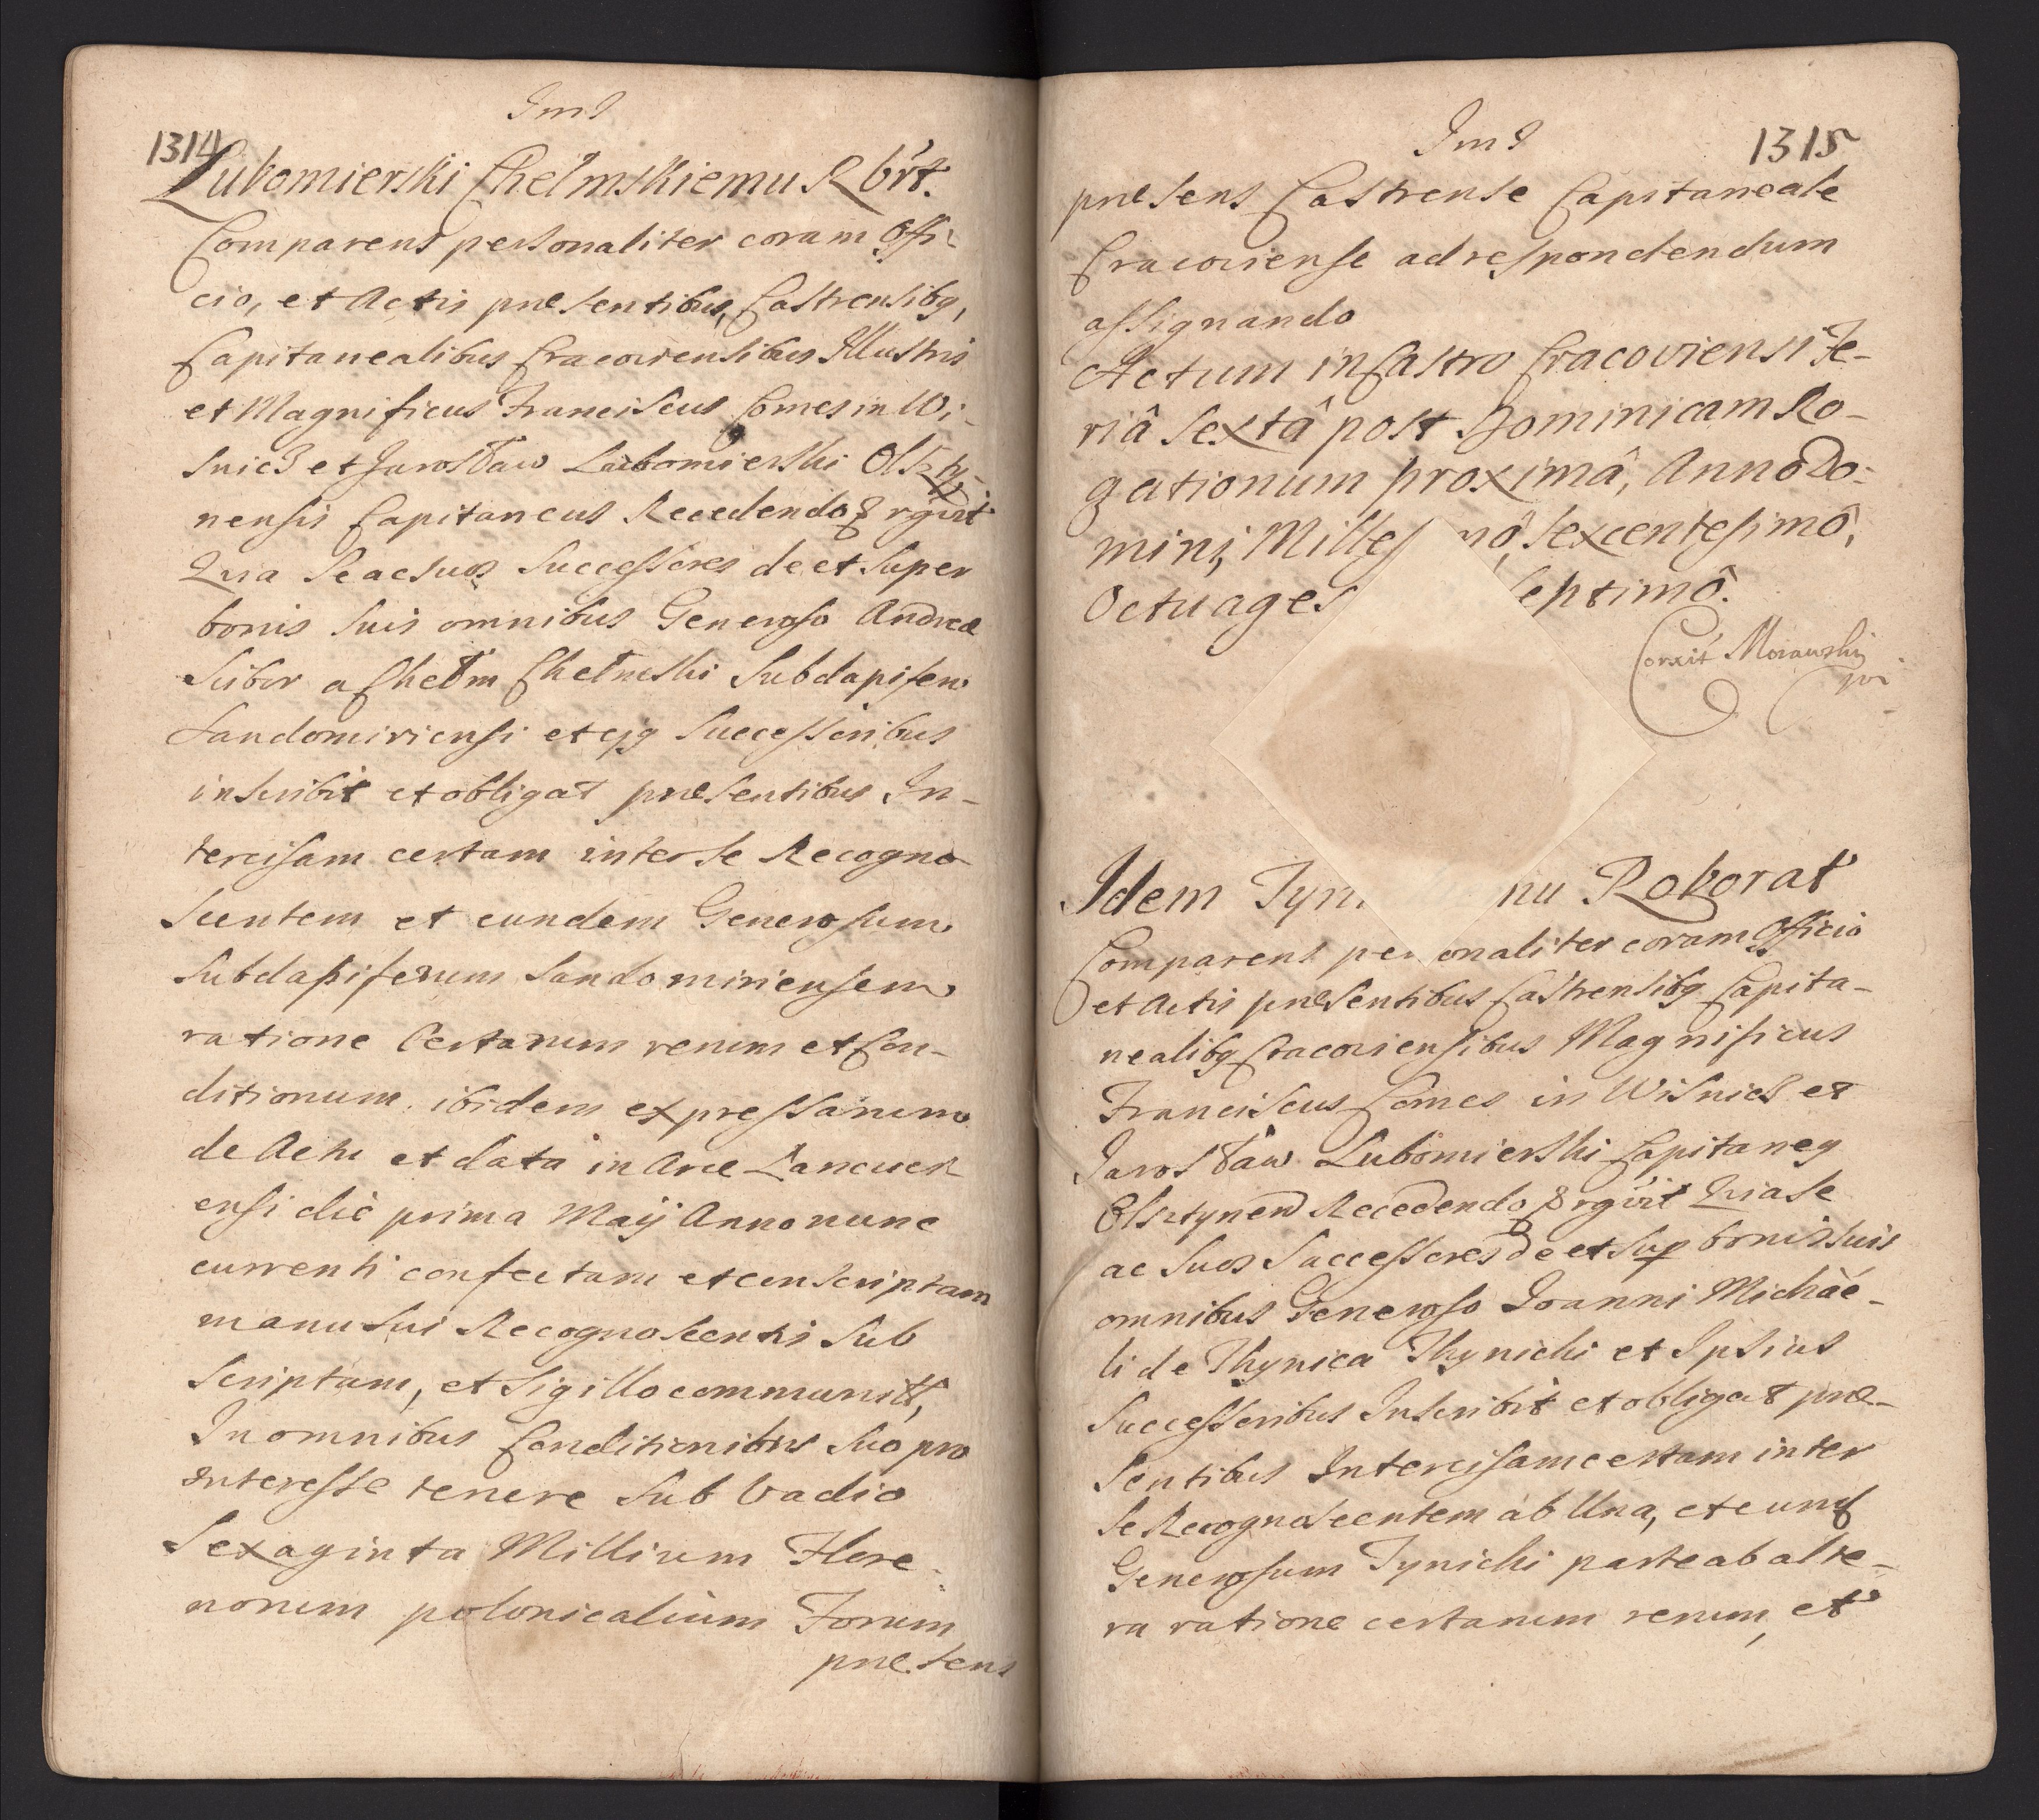 1314
Lubomierski Chełmskiemu Rbrt.
Comparens personaliter coram Offi-
cio, et Actis præsentibus, Castrensibq,
Capitanealibus Cracoviensibus Illustris
et Magnificus Franciscus Comes in Wi-
snicz et Jarosław Lubomierski Olszty-
nensis Capitaneus Recedendo
Quia Se ac Suos Successores de et Super
bonis Suis omnibus Generoso Andreæ
Scibor a Chełm Chełmski Subdapifero
Sandomiriensi et ejq Successoribus
inscribit et obligat præsentibus In-
tercisam certam inter Se Recogno-
scentem et eundem Generosum
Subdapiferum Sandomiriensem
ratione Certarum rerum et Con-
ditionum ibidem expressarum
de Actu et data in Arce Lancuck
ensi die prima Maij Anno nunc
currenti confectam et conscriptam
manu Sui Recognoscentis Sub
Scriptam, et Sigillo communitt,
In omnibus Conditionibus Suo pro
interesse tenere Sub Vadio
Sexaginta Millium Flore-
norum polonicalium Forum
præsens
1315
præsens Castrense Capitaneale
Cracoviense ad respondendum
assignando
Actum in Castro Cracoviensi Fe-
riâ Sextâ post Dominicam Ro-
gationum proximâ, Anno Do-
mini, Milles mô, Sexcentesimô,
Octuages eptimô.
Corxit Morawski
Idem Tyn nu Roborat
Comparens per onaliter coram Officio
et Actis præsentibus Castrensibq Capita-
nealibq Cracoviensibus Magnificus
Franciscus Comes in Wisnicz et
Jarosław Lubomierski Capitaneq
Olsztynen Recedendo Quia Se
ac Suos Successores de et Sup bonis Suis
omnibus Generoso Joanni Michae-
li de Thynica Thynicki et Ipsius
Successoribus Inscribit et obligat præ-
sentibus Intercisam certam inter
Se Recognoscentem ab Una, et eund
Generosum Tynicki parte ab alte-
ra ratione certarum rerum, et